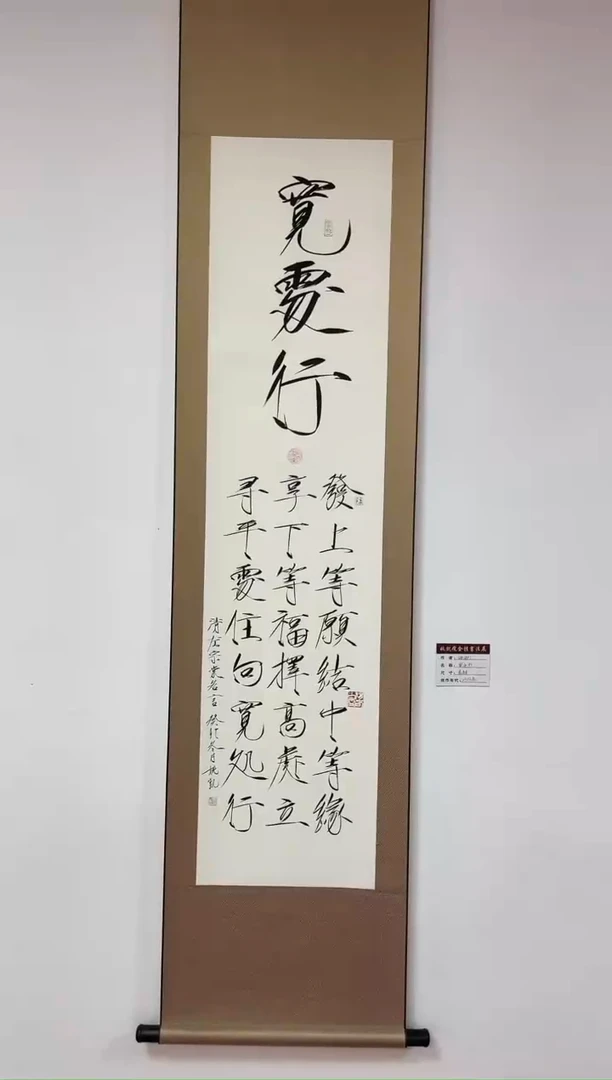 寬處行
發上等願結中等緣
享下等福擇高處立
寻平處住向寬処行
清左宗棠名言 癸卯